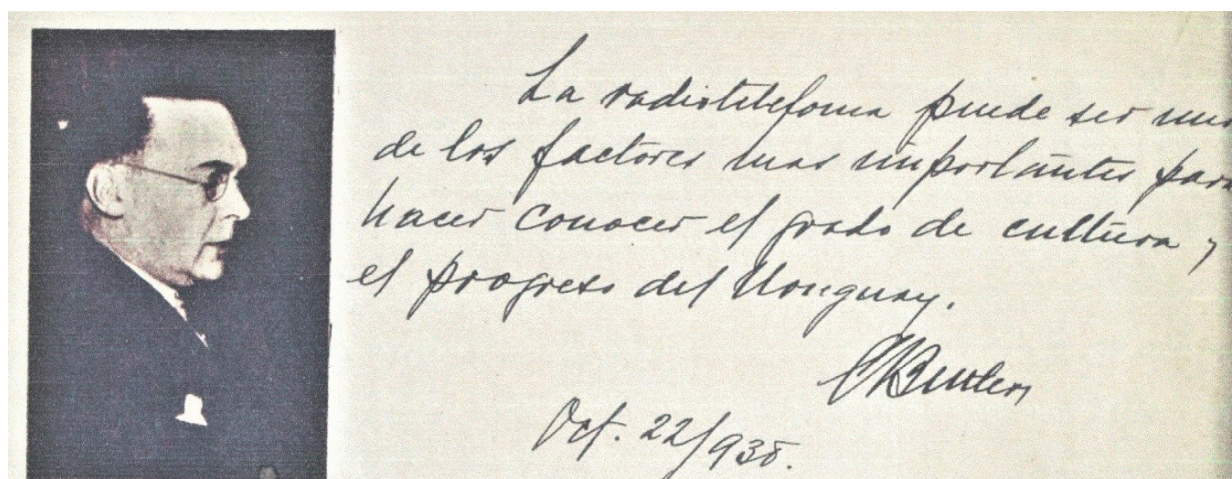 La radiotelefonia puede ser uno
de los factores mas importantes para
hacer conocer el grado de cultura y
el progreso del Uruguay.
Oct. 22/938.